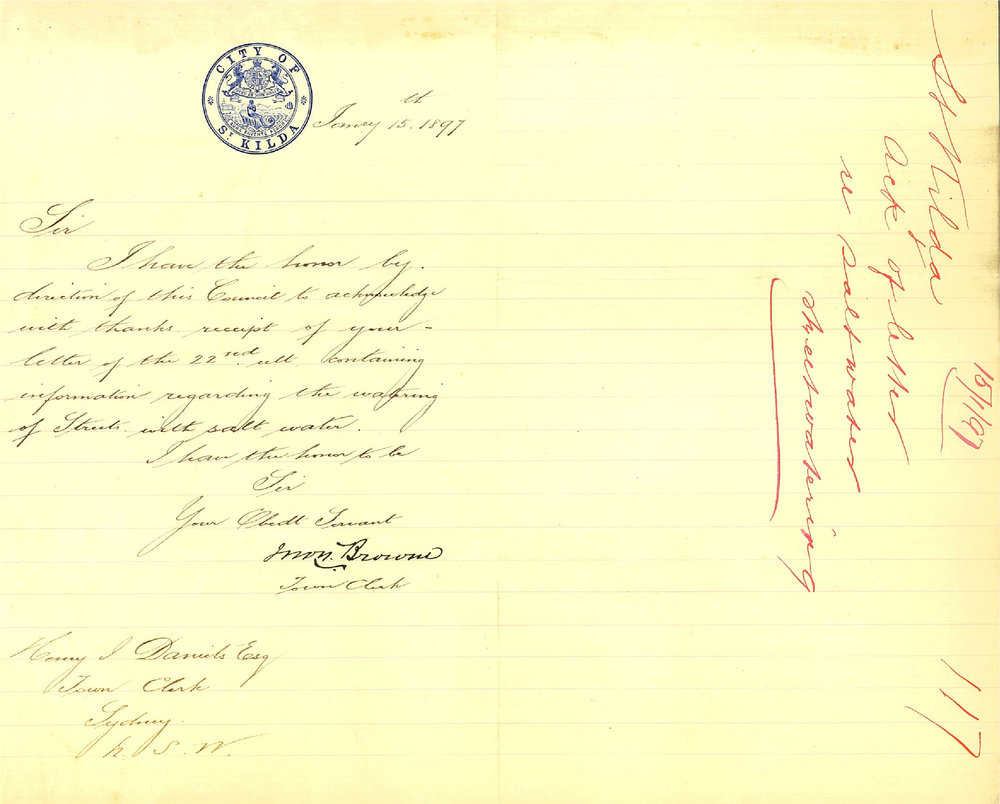 CITY OF
ST KILDA
Janry 15th 1897
Sir
I have the honor by
direction of this Council to acknowledge
with thanks receipt of your
letter of the 22nd ult containing
information regarding the watering
of Streets with salt water.
I have the honor to be
Sir
Your Obedt Servant
Jno N. Browne
Town Clerk
Henry J Daniels Esq
Town Clerk
Sydney
N. S. W.
St Kilda
15/1/97
Ack of letter
re Salt water
streetwatering
117